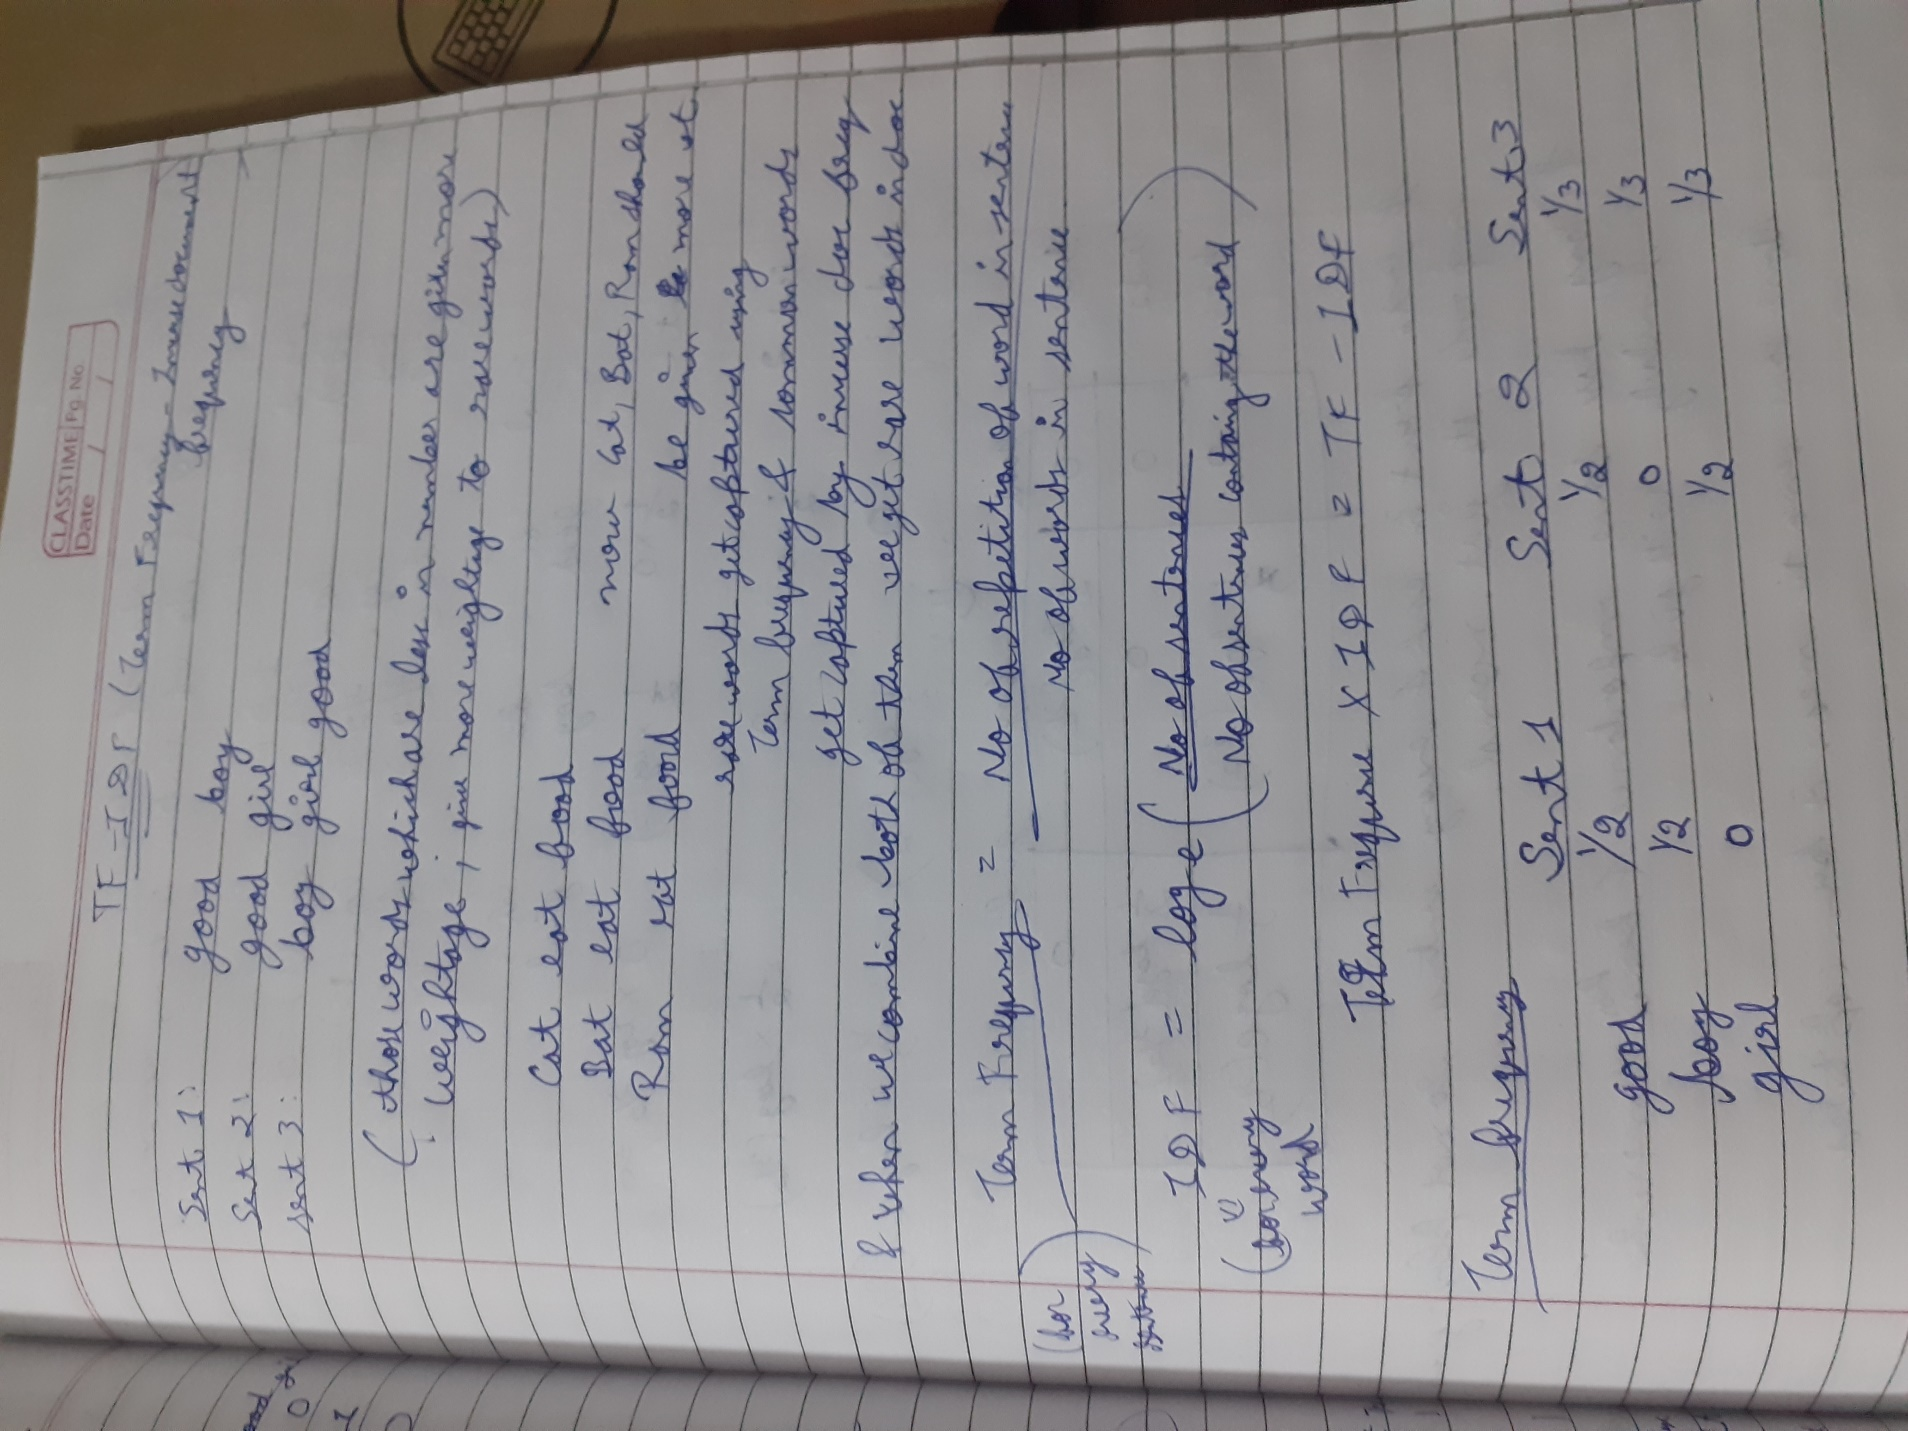 CLASSTIME Pg. No.
Date / /
TF-IDF (Term Frequency - Inverse document
frequency
Sent 1: good boy
Sent 2: good girl
sent 3: boy girl good
(those words which are less in number are given more
weightage, give more weightage to rare words)
Cat eat food
Bat eat food now Cat, Bat, Ram should
Ram eat food be given more wt
rare words get captured using
Term frequency & common words
get captured by inverse doc freq
& when we combine both of them we get rare words in doc
Term Frequency = No of repetition of word in sentence
No of words in sentence
(for
every
sentence
IDF = log e (No of sentences
No of sentences containing the word)
(for every
word
Term Frequence X IDF = TF - IDF
Term frequency
Sent 1 Sent 2 Sent 3
good 1/2 1/2 1/3
boy 1/2 0 1/3
girl 0 1/2 1/3
0
1
0